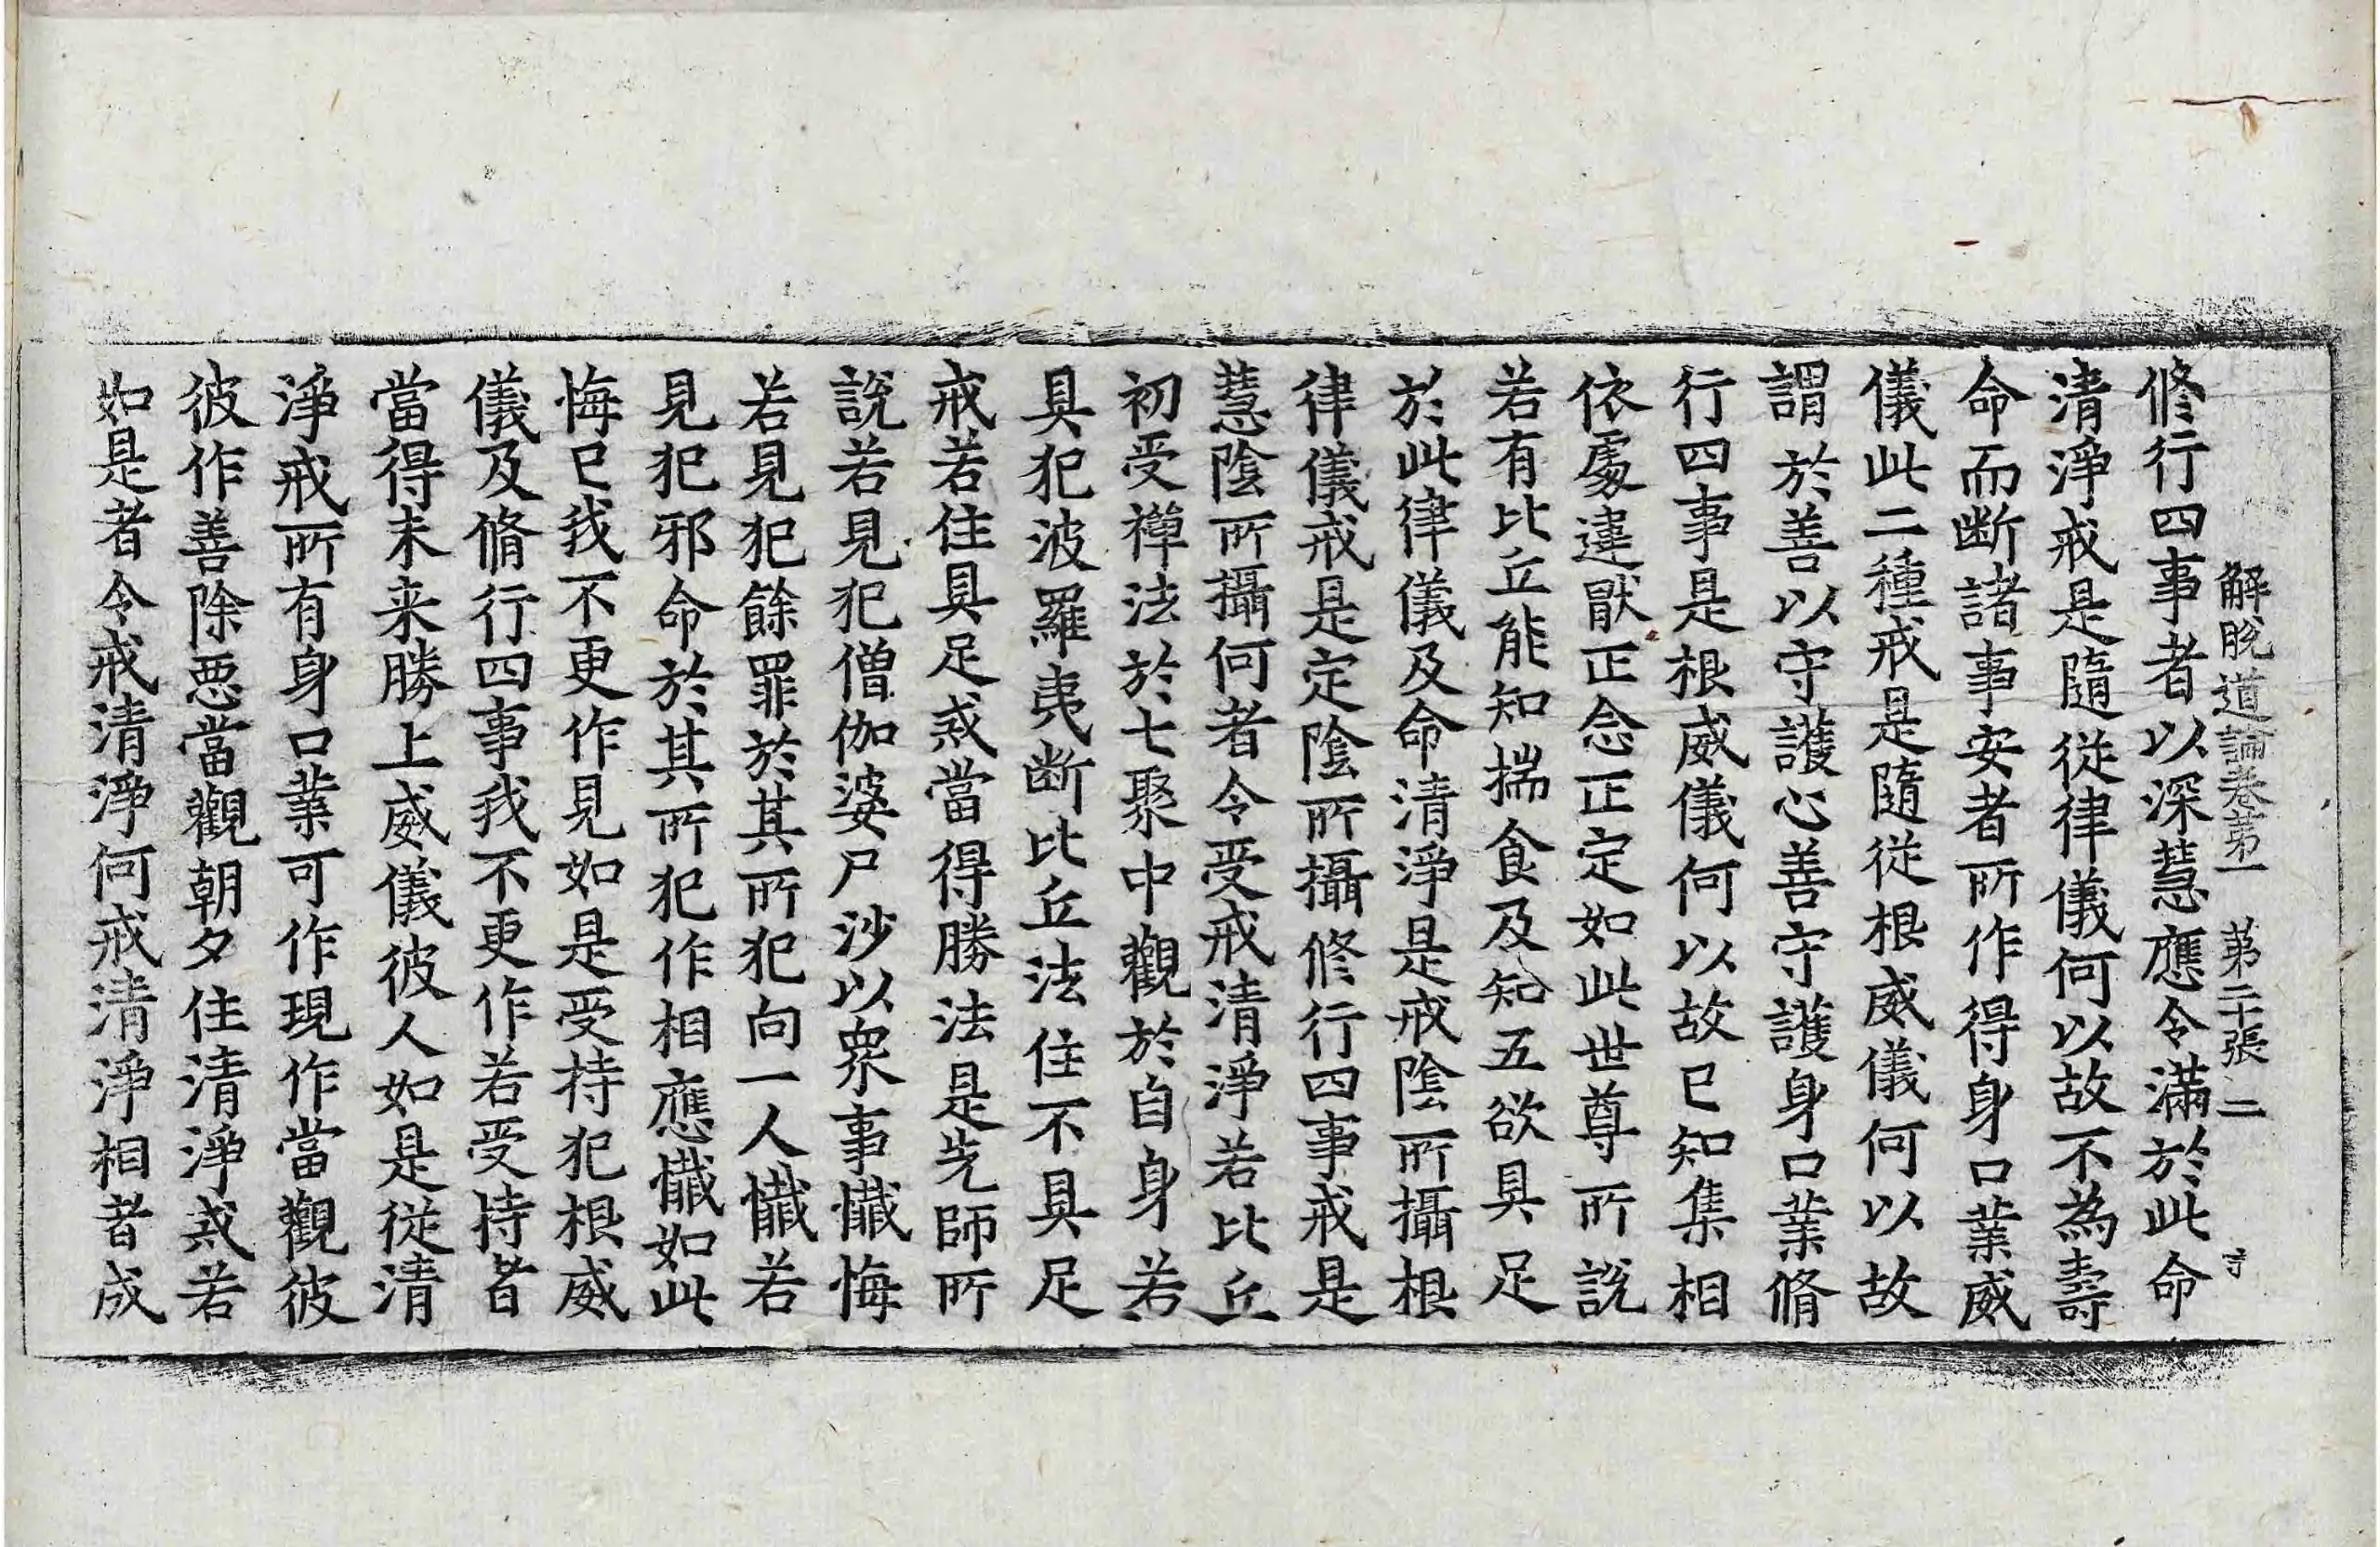 解脫道論卷第一　第二十張　二
寺
修行四事者以深慧應令滿於此命
清淨戒是隨從律儀何以故不為壽
命而斷諸事安者所作得身口業威
儀此二種戒是隨從根威儀何以故
謂於善以守護心善守護身口業脩
行四事是根威儀何以故已知集相
依處違猒正念正定如此世尊所說
若有比丘能知揣食及知五欲具足
於此律儀及命清淨是戒陰所攝根
律儀戒是定陰所攝修行四事戒是
慧陰所攝何者令受戒清淨若比丘
初受禪法於七聚中觀於自身若
具犯波羅夷断比丘法住不具足
戒若住具足戒當得勝法是先師所
說若見犯僧伽婆尸沙以衆事懺悔
若見犯餘罪於其所犯向一人懺若
見犯邪命於其所犯作相應懺如此
悔已我不更作見如是受持犯根威
儀及脩行四事我不更作若受持者
當得未来勝上威儀彼人如是從清
淨戒所有身口業可作現作當觀彼
彼作善除悪當觀朝夕住清淨戒若
如是者令戒清淨何戒清淨相者成